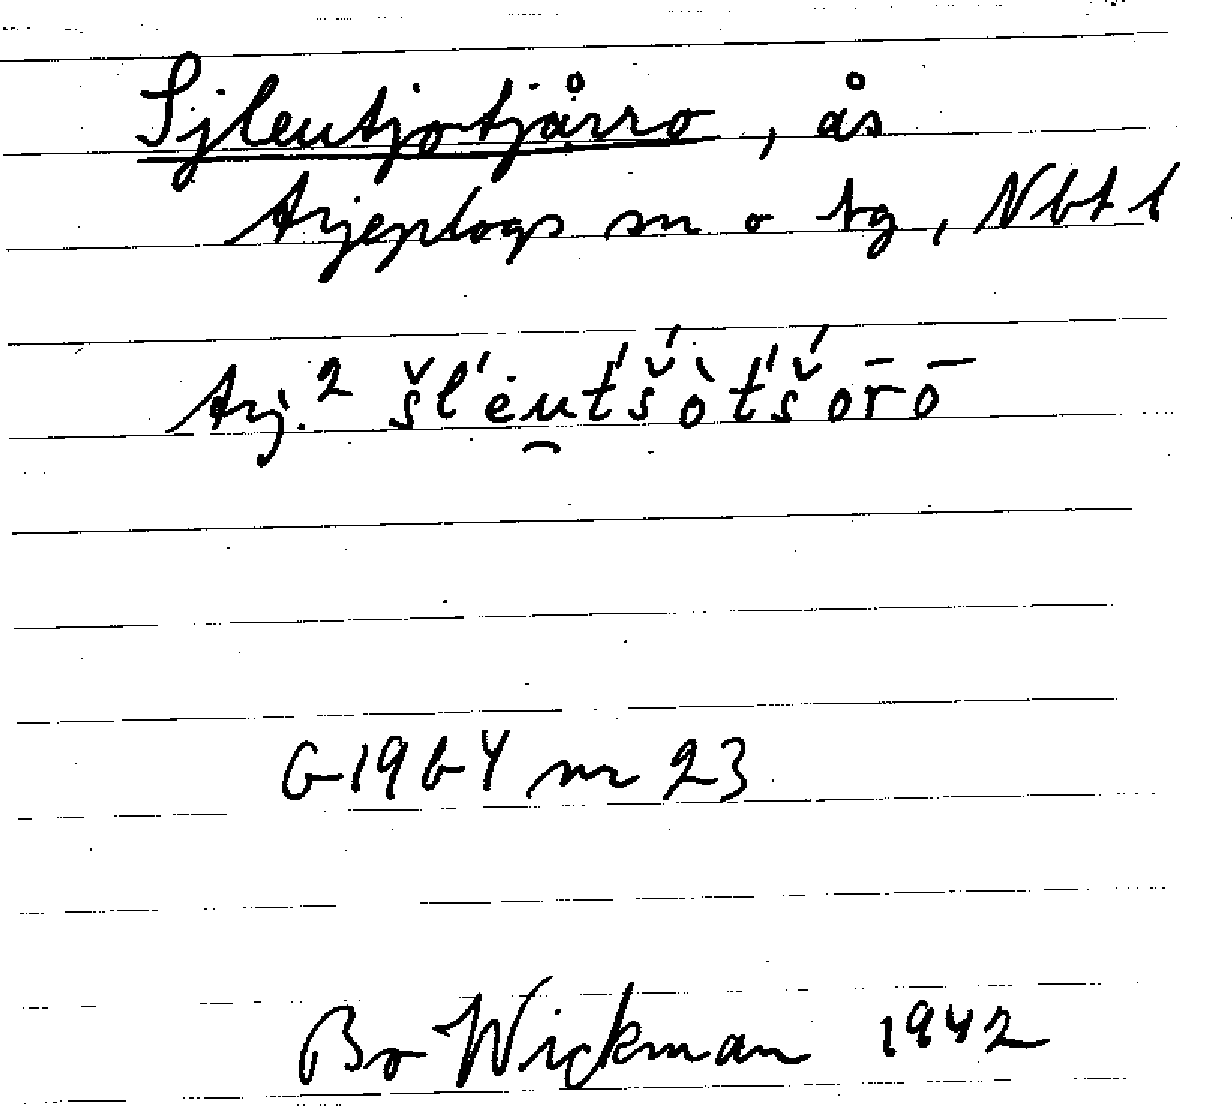 Sjleutjotjårro, ås
Arjeplogs sn o tg, Nbt l
Arj.² šl'ėu̯t́š́òt́š́or̄ō
G 1964 nr 23
Bo Wickman 1942